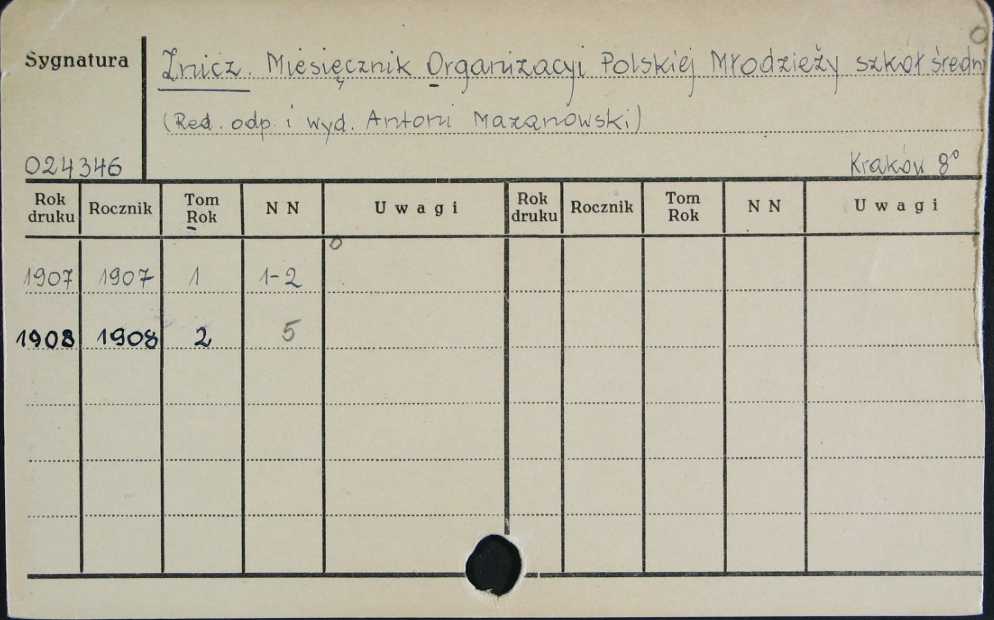 Sygnatura Znicz. Miesięcznik Organizacyi Polskiéj Młodzieży szkół średn
(Red. odp. i wyd. Antoni Mazanowski)
024346 Kraków 8°
Rok druku Rocznik Tom Rok N N Uwagi Rok druku Rocznik Tom Rok N N Uwagi
1907 1907 1 1-2
1908 1908 2 5